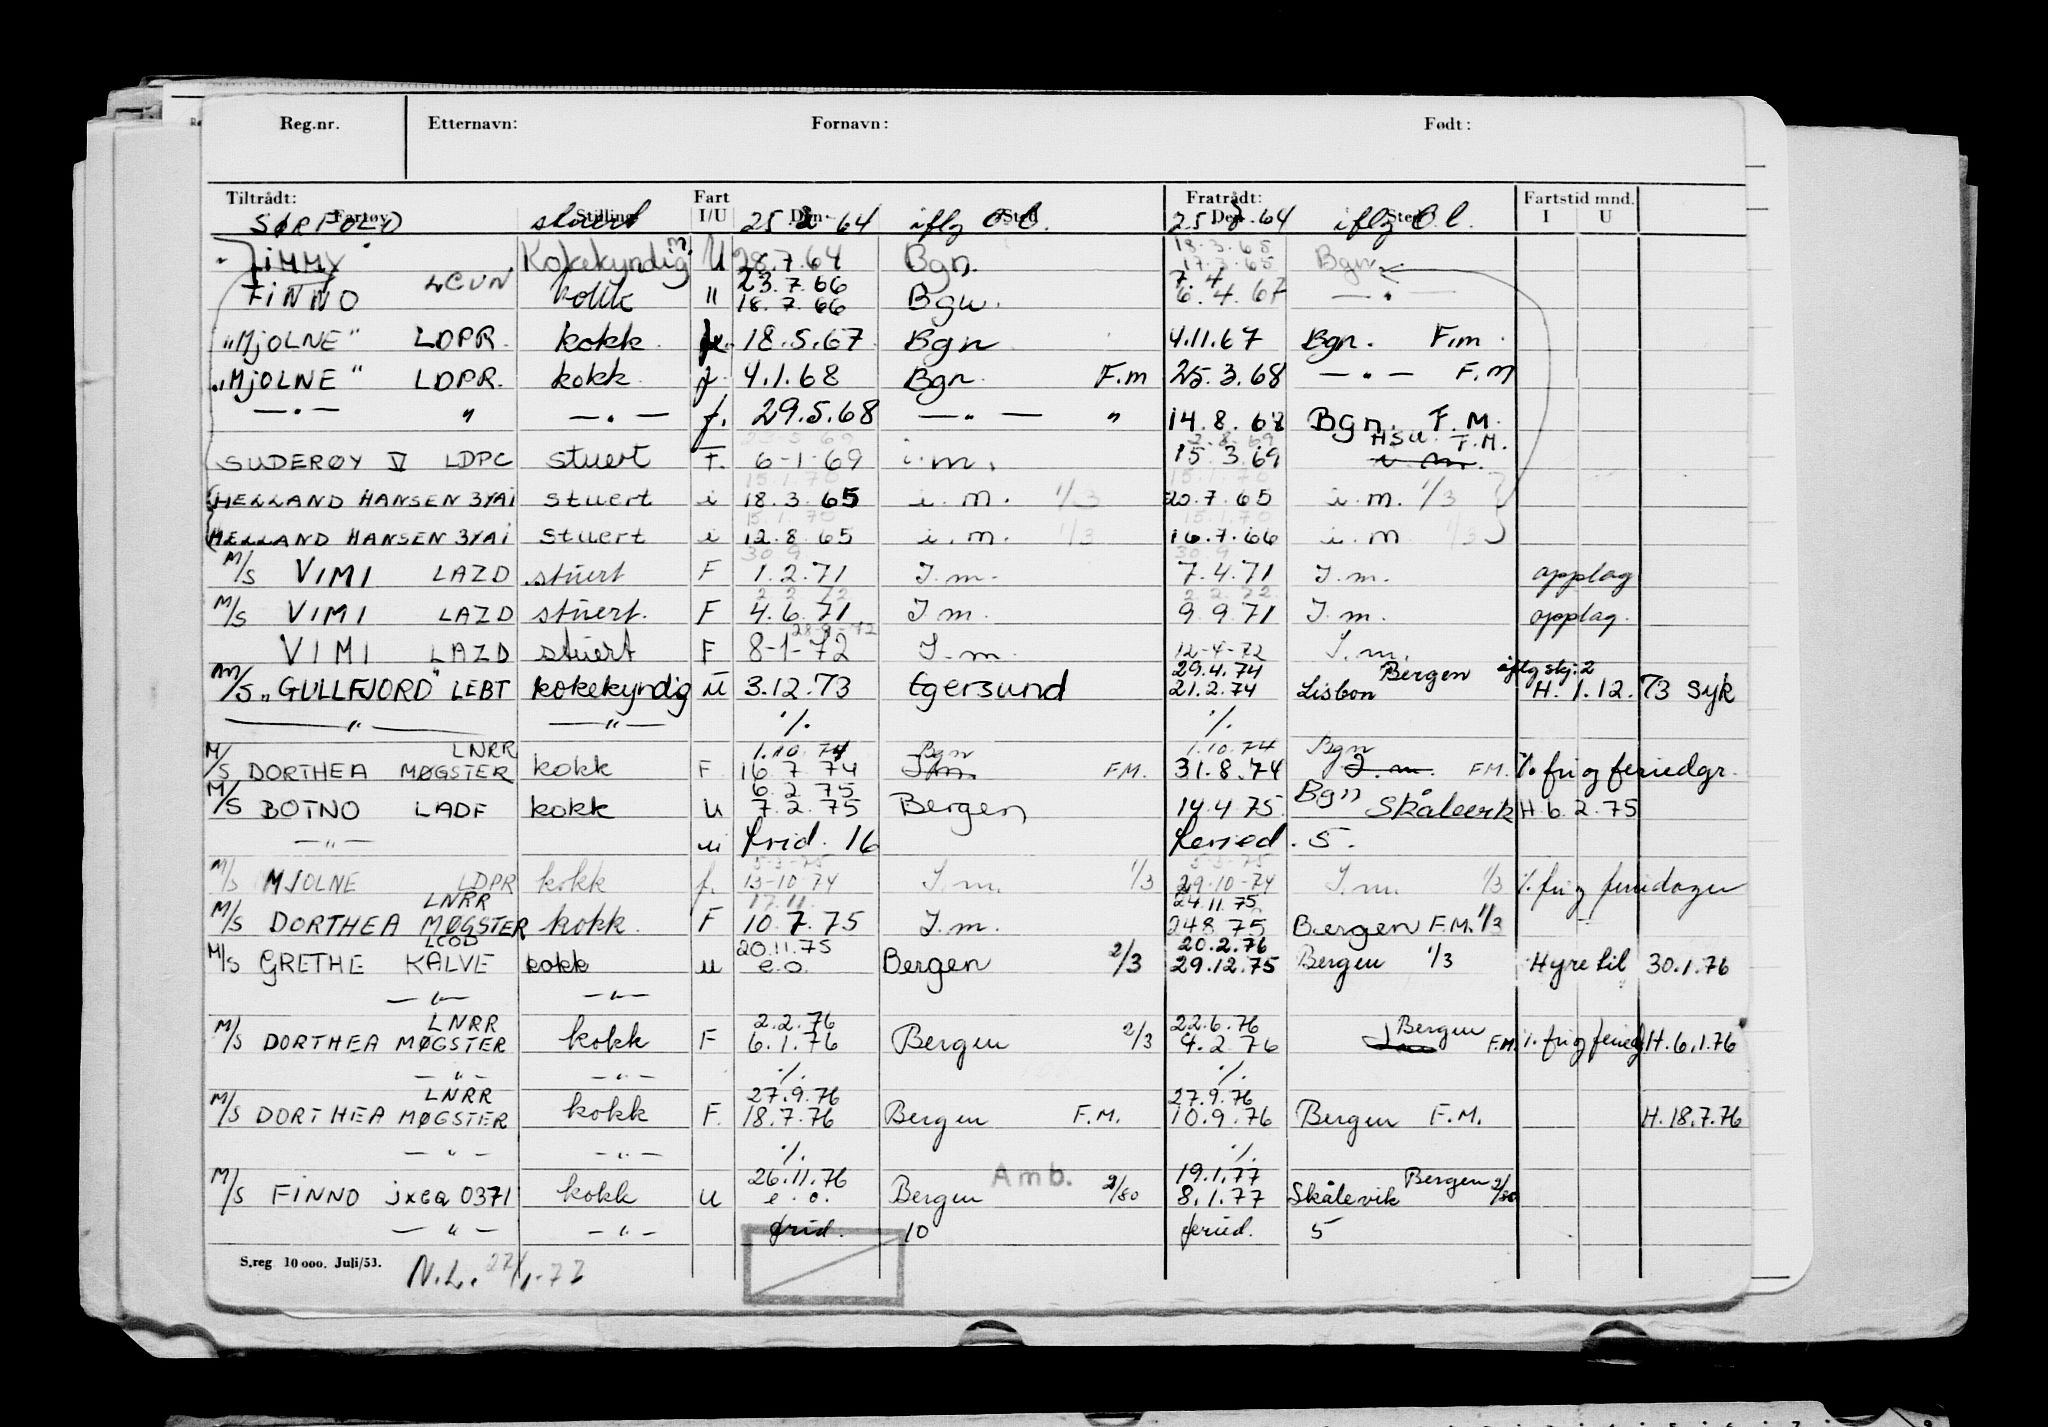 Reg.nr. Etternavn: Fornavn: Født:
Tiltrådt: Fart Fratrådt: Fartstid mnd.
Fartøy Stilling I/U Den Sted Den Sted I U
SØRFOLD stuert 25 64 iflg O.l. 25. 64 iflg O.l.
18.3.65
JIMMY Kokekyndig U 28.7.64 Bgn. 17.3.65 Bgn.
LCVN 23.7.66 7.4
FINNO kokk " 18.7.66 Bgn. 6.4.67 — " —
"MJOLNE" LDPR. kokk. 18.5.67 Bgn 4.11.67 Bgn. F.m.
"MJOLNE" LDPR. kokk. f. 4.1.68 Bgn. F.m 25.3.68 — " — F.M
— " — " — " — f. 29.5.68 — " — " 14.8.68 Bgn. F.M.
69 69 HSU. F.M.
SUDERØY V LDPC stuert F. 6-1-69 i.m. 15.3.69 i m.
15.1.70 15.1.70
HELLAND HANSEN 3YAI stuert i 18.3.65 i.m. 1/3 20.7.65 i.m. 1/3
15.1.70 15.1.70
HELLAND HANSEN 3YAI stuert i 12.8.65 i.m. 1/3 16.7.66 i.m 1/3
30.9 30.9
M/S VIMI LAZD stuert F 1.2.71 I.m. 7.4.71 I.m. opplag
2.2.72 2.2.72
M/S VIMI LAZD stuert. F 4.6.71 I.m. 9.9.71 I.m. opplag.
VIMI LAZD stuert F 8-1-72 I.m. 12-4-72 I.m.
29.4.74 Bergen iflg skj. 2
M/S "GULLFJORD" LEBT kokekyndig U 3.12.73 Egersund 21.2.74 Lisbon H. 1.12.73 syk
— " — — " — ./. ./.
LNRR 1.10.74 Bgn 1.10.74 Bgn
M/S DORTHEA MØGSTER kokk F. 16.7.74 I.m. FM. 31.8.74 I.m. FM. ./. fri og feriedgr.
6.2.75 Bgn
M/S BOTNO LADF kokk U 7.2.75 Bergen 14.4.75 Skålevik H 6.2.75
— " — frid. 16 feried. 5.
5-3-75 5-3-75
M/S MJOLNE LDPR kokk f. 13-10-74 I.m. 1/3 29-10-74 I.m. 1/3 ./. fri og feriedager
LNRR 17.11. 24.11.75
M/S DORTHEA MØGSTER kokk. F 10.7.75 I.m. 24.8.75 Bergen F.M. 1/3
LCOD 20.11.75 20.2.76
M/S GRETHE KALVE kokk u e.o. Bergen 2/3 29.12.75 Bergen 1/3 Hyre til 30.1.76
— " — — " —
LNRR 2.2.76 22.6.76 Bergen
M/S DORTHEA MØGSTER kokk F 6.1.76 Bergen 2/3 4.2.76 F.M. ./. fri og feried H. 6.1.76
— " — — " — ./. ./.
LNRR 27.9.76 27.9.76
M/S DORTHEA MØGSTER kokk F. 18.7.76 Bergen F.M. 10.9.76 Bergen F.M. H. 18.7.76
— " — — " — ./. ./.
26.11.76 Amb. 19.1.77 Bergen
M/S FINNO jxEQ 0371 kokk U e.o. Bergen 2/80 8.1.77 Skålevik 2/80
— " — — " — frid. 10 feried. 5
S.reg 10 000. Juli/53. N.L.